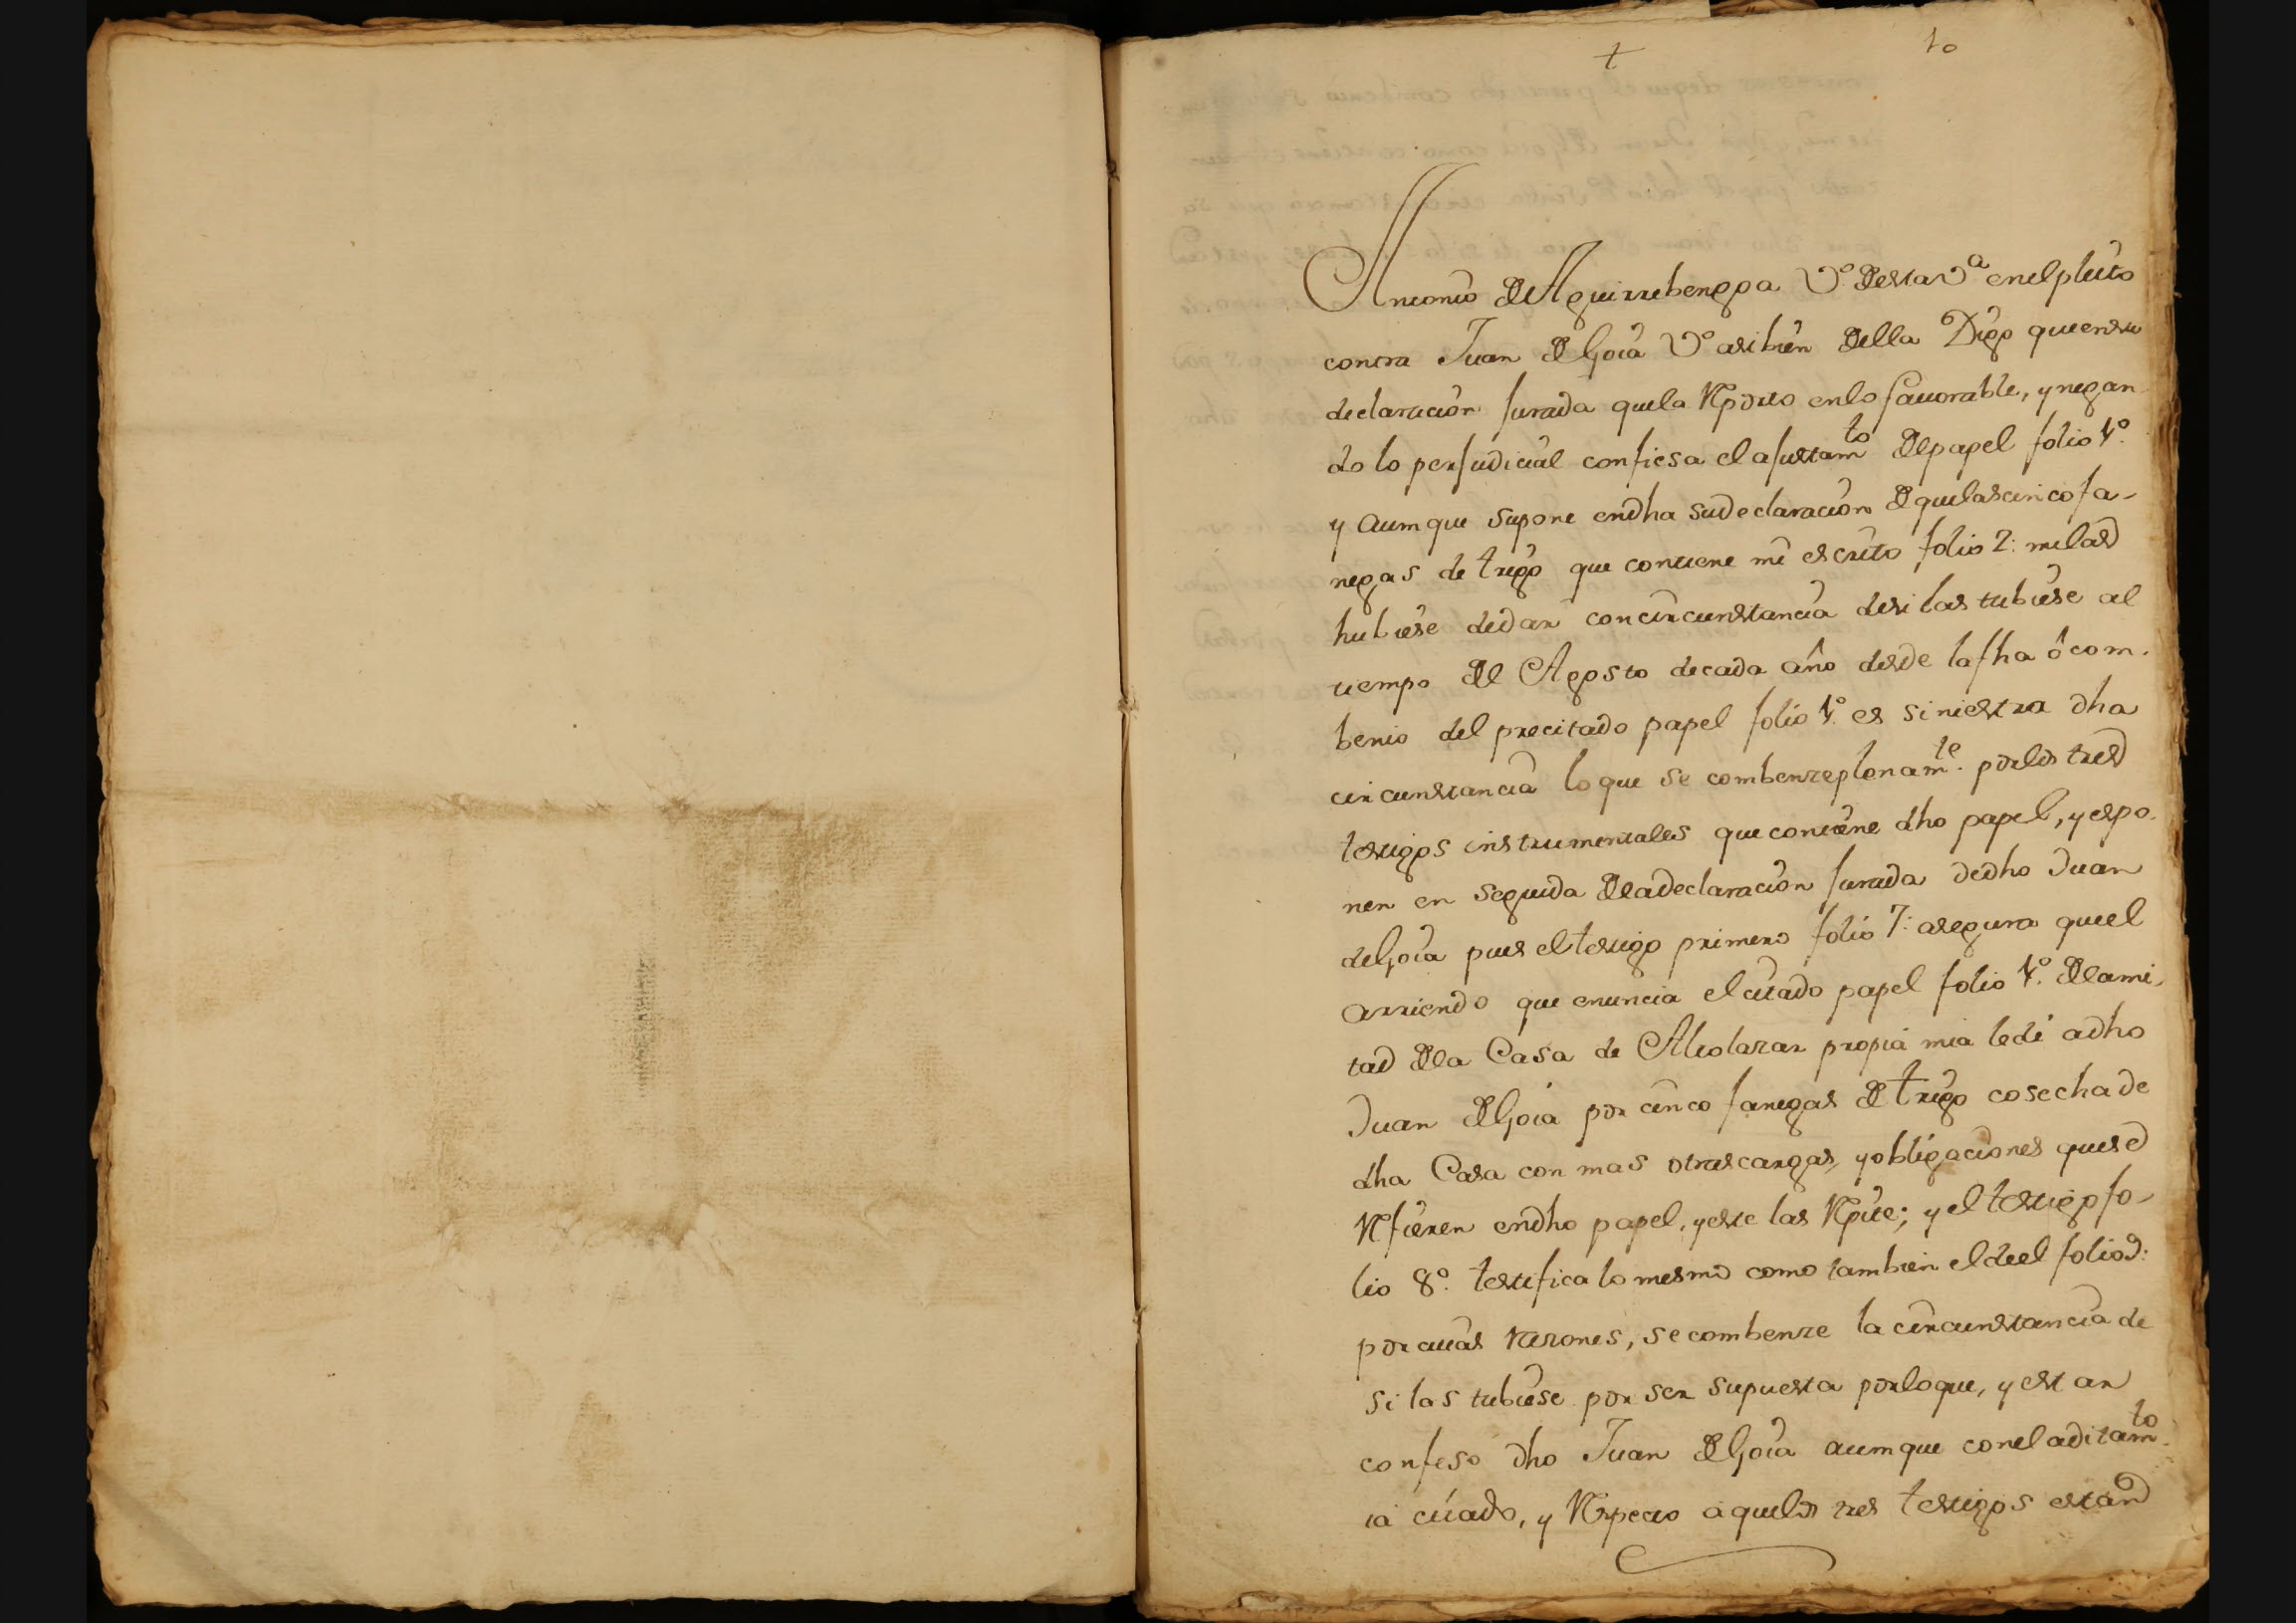 +
10
Antonio de Aguirrebengoa Vº. desta Vª en el pleito
contra Juan de Goia Vº asibien della Digo que en su
declaracion Jurada que la Rproduzo en lo fauorable, y negan
do lo perJudicial confiesa el aJustamto del papel folio 1º.
y aumque supone en dha su declaracion de que las cinco fa-
negas de trigo que contiene mi escrito folio 2: me las
hubiese de dar con circunstancia de si las tubiese al
tiempo del Agosto de cada año desde la fha ô com-
benio del precitado papel folio 1º. es siniestra dha
circunstancia lo que se combenze plenamte. por los tres
testigos instrumentales que contiene dho papel, y espo-
nen en seguida de la declaracion Jurada de dho Juan
de Goia pues el testigo primero folio 7: asegura que el
arriendo que enuncia el citado papel folio 1º. de la mi-
tad de la Casa de Alcolazar propia mia le di a dho
Juan de Goia por cinco fanegas de trigo cosecha de
dha Casa con mas otras cargas, y obligaciones que se
Rfieren en dho papel, y este las Rpite; y el testigo fo-
lio 8º. testifica lo mesmo como tambien el de el folio 9:
por cuias razones, se combenze la circunstancia de
si las tubiese por ser supuesta por lo que, y estar
confeso dho Juan de Goia aumque con el aditamto.
ia citado, y Rspecto a que los tres testigos estan